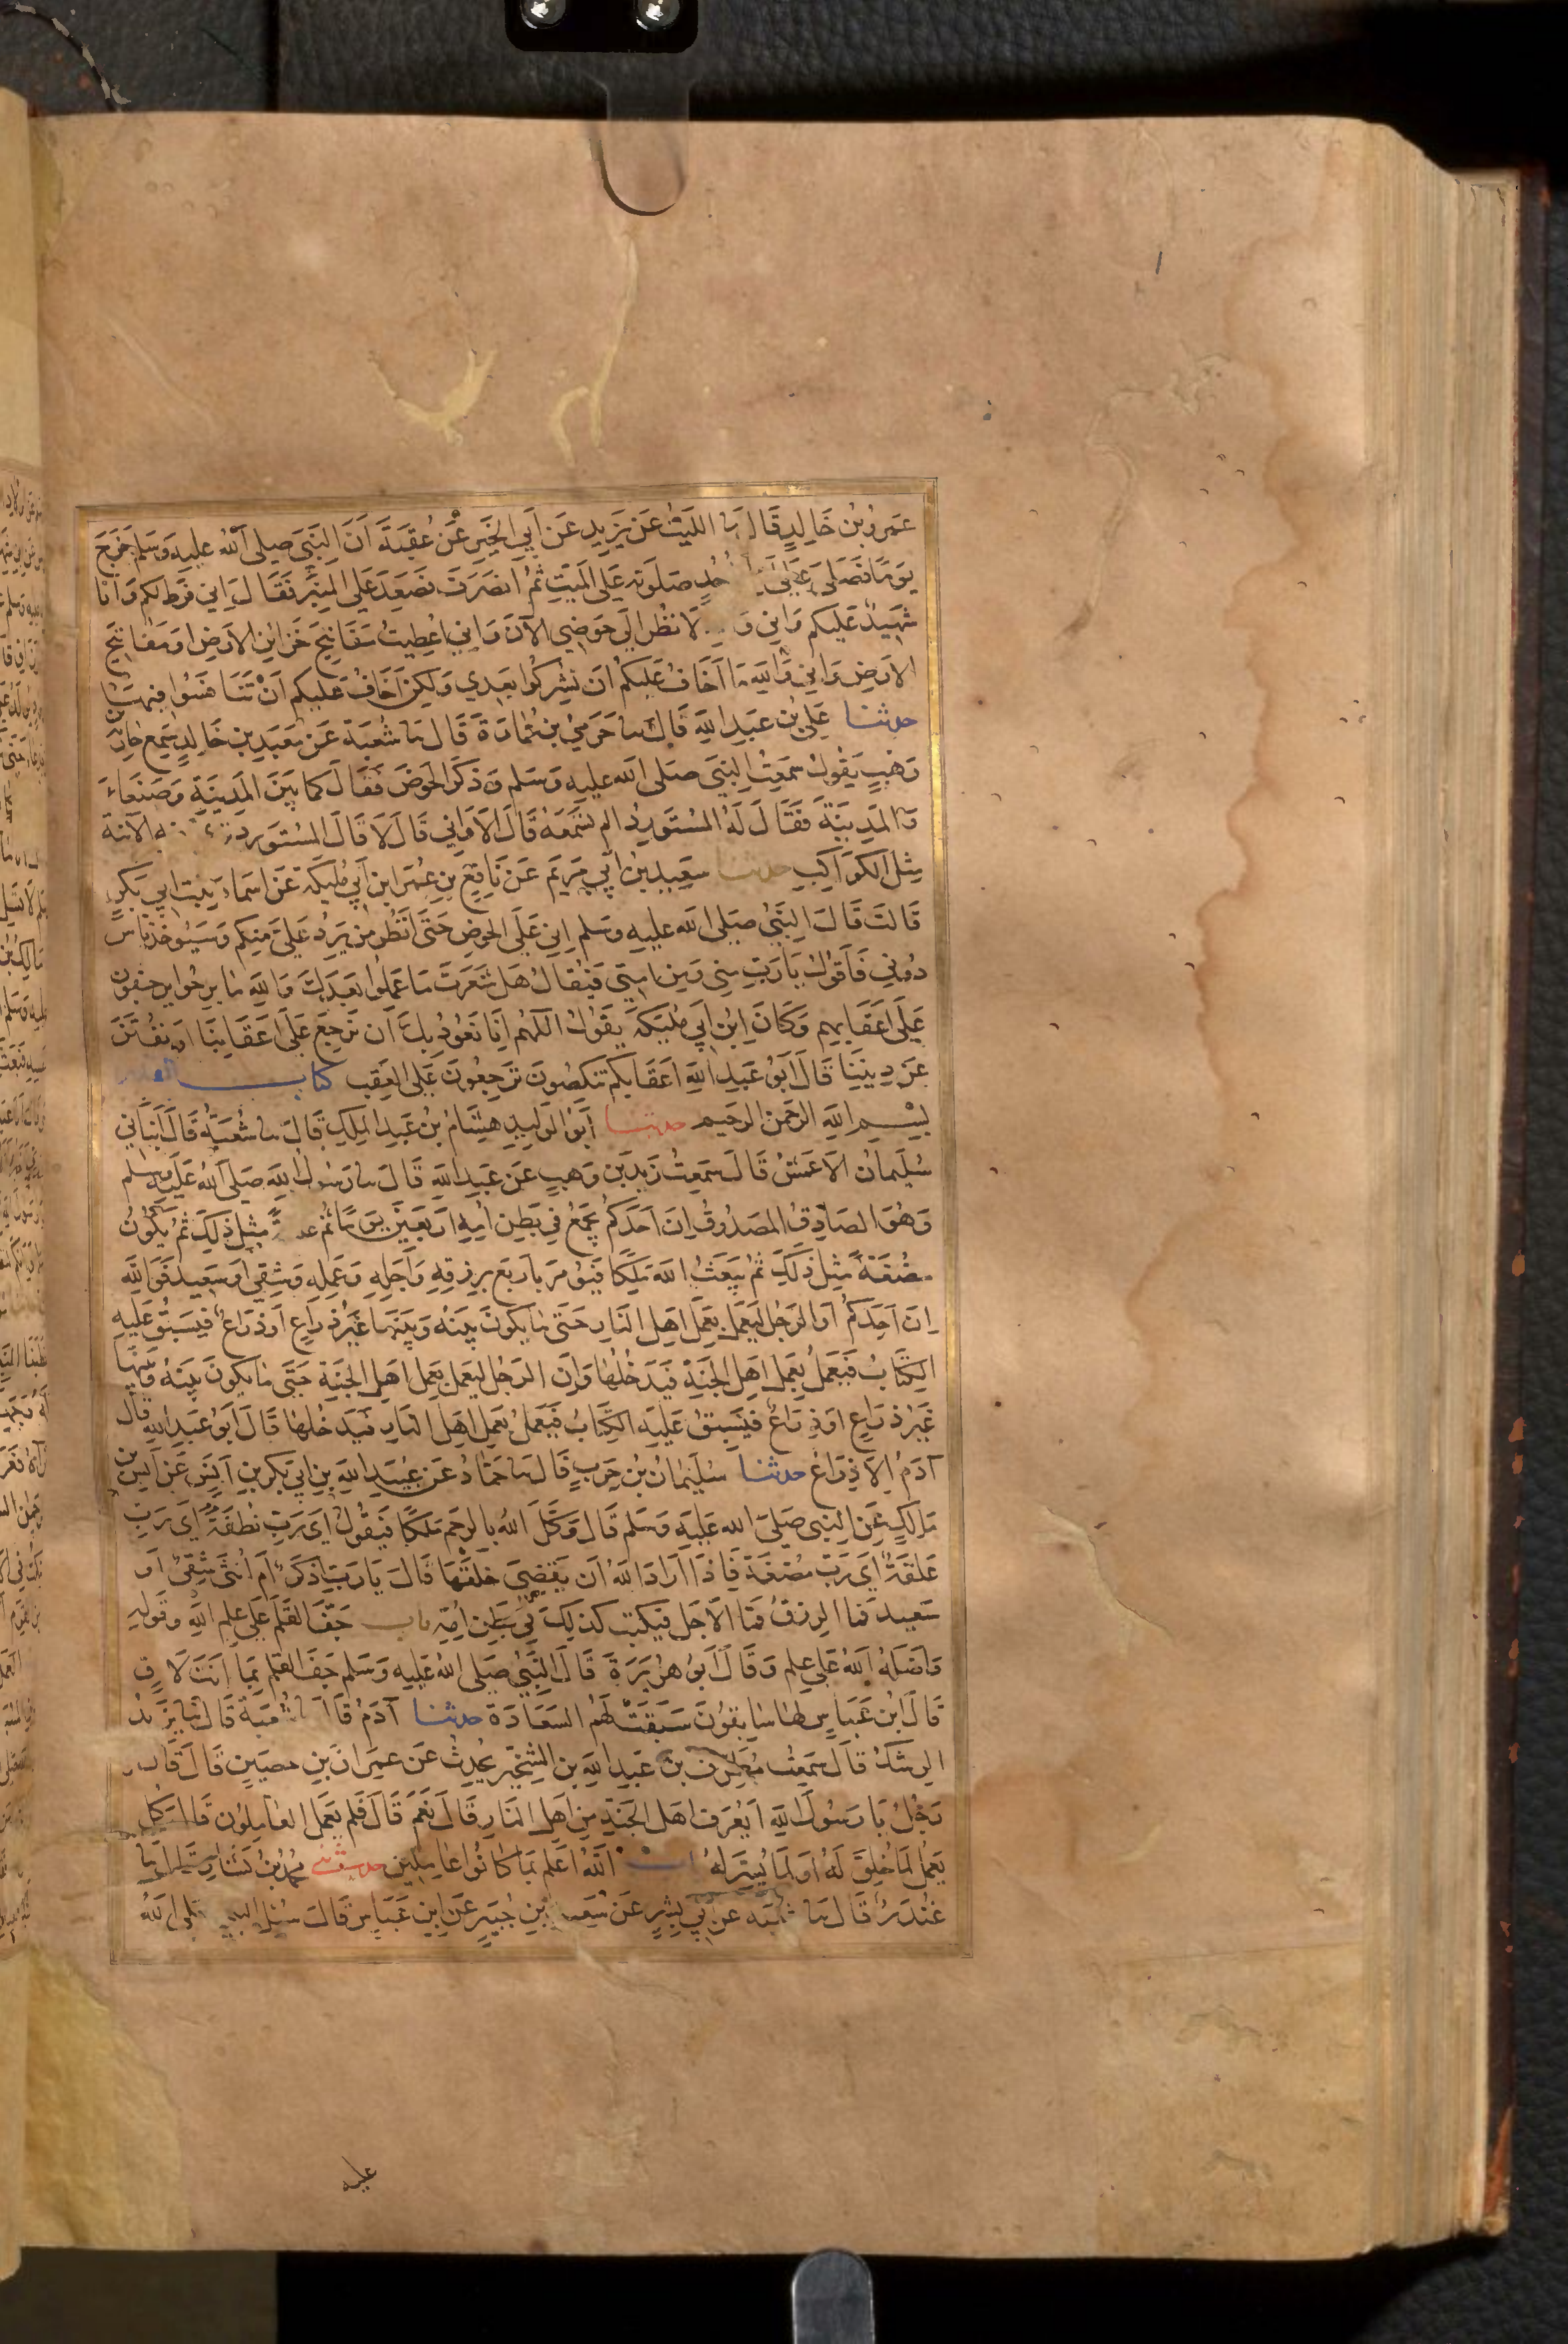 عَمرُو بْنُ خَالِدٍ قَالَ نا اللَّيْثُ عَنْ يَزِيدَ عَنْ أَبِي الخَيْرِ عَنْ عُقْبَةَ أَنَّ النَّبِيَّ صلى الله عليه وسلم خَرَجَ
يَومًا فَصَلَّى عَلَى حُدٍ صَلَوتَه عَلَى المَيِّتِ ثُمَّ انْصَرَفَ فصَعِدَ عَلَى المِنْبَرِ فَقَالَ إِنِي فَرَط لكم وَأنَا
شَهِيدٌ عَلَيكم وَاني وَ لَانظُر إلى حَوضِي الآنَ وَاني اُعطِيتُ مَفَاتِيحَ خَزَائِنِ الأرضِ او مفاتيح
الارضِ وَاني وَالله مَا اَخَافُ عَليكُم أن تشرِكُوا بَعدِي وَلكِن اَخَافُ عَليكم اَنْ تَنَافَسُوا فِيهَا
حدثنا عَلِي بْنُ عَبدِ الله قَالَ نا حَرَمِيّ بن عُمَارَة قَالَ نا شُعبَة عَنْ مَعبَدِ بنِ خَالِدٍ سَمِعَ حَارِثَة بن
وَهبٍ يَقُولُ سَمِعتُ النبي صلى الله عليه وَسَلم وَذكَرَ الحَوضَ فَقَالَ كما بَينَ المَدِينَةِ وَصَنعَاءَ
وَالمَدِينَة فَقَالَ لَهُ المُستَورِدُ الم تسمَعه قَالَ الأوَاني قَالَ لَا قَالَ المُستَورِد به الآنية
مِثلَ الكَوَاكِبِ حدثنا سَعِيدِ بنِ اَبي مَريَم عَن نَافِعِ بنِ عُمَر ابنِ اَبي مُلَيكَة عَن اسمَاءَ بِنتِ ابي بَكرٍ
قَالَت قَالَ النَّبي صلى الله عليه وسلم اِني عَلَى الحوضِ حَتى انظُر مَن يَرِدُ عَلَيّ مِنكم وَسَيُوخَذُ نَاس
دُوني فَأَقُولُ يَا رَبِ مِنِي وَمِن امتِي فَيُقَالُ هَل شَعَرتَ مَا عَملوا بَعدَكَ وَالله ما بَرِحُوا يرجعُون
عَلَى اَعقَابِهِم وَكَانَ ابنُ اَبي مُلَيكَة يَقُولُ اللّهُم اِنا نَعُوذُ بِكَ أن نَرجِعَ عَلَى اَعقَابِنَا اَو نُفتَنَ
عَن دِينِنَا قَالَ اَبُو عَبدِ اللهِ اَعقَابِكُم تَنكِصُونَ تَرجِعُونَ عَلَى العَقِب كتاب القدر
بِسمِ اللهِ الرّحمن الرّحيم حدثنا اَبُو الوَلِيدِ هِشَامُ بْنُ عَبدِ المَلِكِ قَالَ نا شُعبَةُ قَالَ اَنبَأني
سُلَيمَانُ الاَعمَشُ قَالَ سَمِعتُ زَيدَ بن وَهبٍ عَن عَبدِ الله قَالَ نا رَسُولُ الله صَلى الله عَلَيه وسلم
وَهُوَ الصَّادِقُ المَصدُوقُ اِنَّ اَحَدَكم يُجمَعُ فِي بَطنِ اُمِهِ اَربَعِينَ يَومًا ثُم مِثل ذلِكَ ثُم يَكُونُ
مُضغَةً مِثلَ ذَلِكَ ثُمَّ يَبعَثُ الله مَلَكًا فَيُومَر بِاَربَع بِرِزقِهِ وَاَجَلِهِ وَعَمَلِه وَشقي او سَعِيد فَوَالله
اِنّ اَحَدَكُم اَو الرَّجُلَ لَيَعمَلُ بِعَمَلِ اَهلِ النّارِ حَتّى مَا يَكُونَ بَينَهُ وَبَينَهَا غَيرُ ذِرَاعٍ اَو ذِرَاع فَيَسبِقُ عَلَيهِ
الكِتَابُ فَيَعمَلُ بِعَمَلِ اَهلِ الجَنّة فَيَدخُلُهَا وَاِنّ الرَّجُلَ لَيعمَل بعَمَل اهلِ الجَنةِ حَتّى مَا يكُونَ بَينَهُ وَبَينَهَا
غَيرُ ذِرَاعٍ اَو ذِرَاع فَيَسبِقُ عَلَيهِ الكِتَابُ فَيَعمَلُ بعَمَلِ اَهلِ النّارِ فَيَدخُلهَا قَالَ اَبُو عَبدِ الله قال
آدَمُ الاّ ذِرَاع حدثنا سُلَيمَانُ بْنُ حَربٍ قَالَ نا حَمّادُ عَن عُبَيدِ الله بنِ اَبي بَكرِ بنِ اَنَس عَن اَنس بن
مَالِكٍ عَن النبي صَلى الله عَلَيهِ وَسَلم قَالَ وَكَّلَ اللهُ بِالرّحِم مَلَكًا فَيَقُولُ اَي رَبِّ نُطفَةٌ اَي رَبِّ
عَلَقَةٌ اَي رَبِّ مُضغَة فَاِذَا اَرَادَ الله اَن يَقضِيَ خَلقَهَا قَالَ يَا رَبِّ اَذكَر اَم اُنثَى شقيٌ اَو
سَعِيد فَما الرِّزقُ فَمَا الاَجَل فيكتب كذلِكَ فِي بَطنِ اُمِّهِ باب جَفَّ القَلَمُ عَلَى علمِ اللهِ وقوله
وَاضَلّهُ اللهُ عَلَى عِلمٍ وَقَالَ اَبُو هُرَيرَة قَالَ النَّبيُّ صلى الله عَليه وَسَلم جَفّ القَلم بِمَا اَنتَ لَاقٍ
قَالَ ابنُ عَبّاسٍ لهَا سَابِقُونَ سَبَقَت لَهُم السّعَادَة حدثنا آدَمُ قَالَ نا شُعبَة قَالَ ثنا يَزِيدُ
الرِّشكُ قَالَ سَمِعتُ مُطَرِّفَ بن عَبدِ الله بنِ الشِّخِّيرِ يُحَدِّثُ عَن عِمرَانَ بنِ حُصَينٍ قَالَ قَالَ
رَجُلٌ يَا رَسُولَ الله اَيُعرَفُ اَهلُ الجَنّة مِن اَهلِ النَّارِ قَالَ نَعَم قَالَ فَلِم يَعمَلُ العَامِلُونَ قَالَ كل
يَعمَلُ لِمَا خُلِقَ لَهُ اَو لِمَا يُيَسَّر لَهُ باب اللهُ اَعلَم بِمَا كَانُوا عَامِلِين حدثني محمدُ بْنُ بَشّار قال نا
غُنْدَر قَالَ نا شعبَة عَن اَبي بِشرٍ عَن سَعيد بنِ جُبَيرٍ عَن ابنِ عَبّاسٍ قَالَ سُئِل النبي صلى الله
عليه